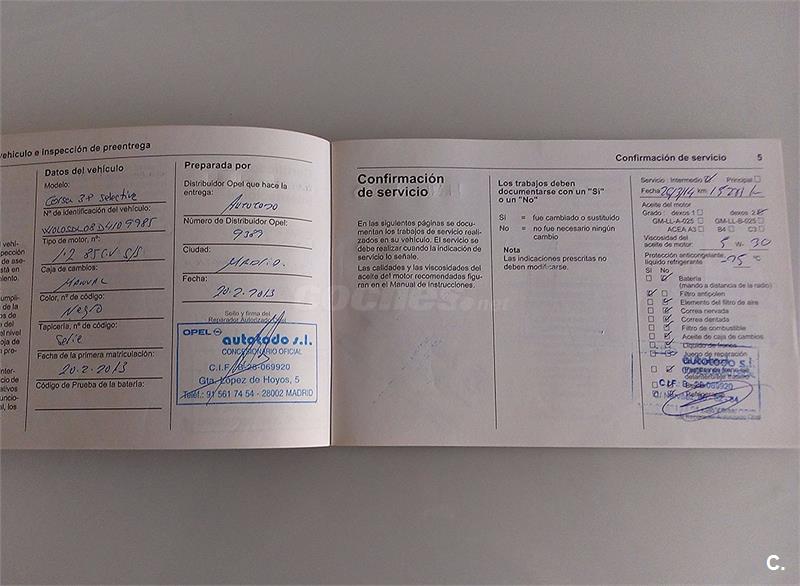 vehículo e inspección de preentrega
Datos del vehículo
Modelo:
Corsa 3P selective
Nº de identificación del vehículo:
Tipo de motor, nº:
1.2 85CV S/S
Caja de cambios:
MANUAL
Color, nº de código:
Negro
Tapicería, nº de código:
Serie
Fecha de la primera matriculación:
20-2-2013
Código de Prueba de la batería:
Preparada por
Distribuidor Opel que hace la
entrega:
AUTOTODO
Número de Distribuidor Opel:
9389
Ciudad:
MADRID.
Fecha:
20-2-2013
Sello y firma del
Reparador Autorizado Opel
OPEL
autotodo s.l.
CONCESIONARIO OFICIAL
C.I.F. B-28-069920
Gta. López de Hoyos, 5
Teléf.: 91 561 74 54 - 28002 MADRID
Confirmación de servicio 5
Confirmación
de servicio
En las siguientes páginas se docu-
mentan los trabajos de servicio reali-
zados en su vehículo. El servicio se
debe realizar cuando la indicación de
servicio lo señale.
Las calidades y las viscosidades del
aceite del motor recomendadas figu-
ran en el Manual de Instrucciones.
Los trabajos deben
documentarse con un "Sí"
o un "No"
Sí = fue cambiado o sustituido
No = no fue necesario ningún
cambio
Nota
Las indicaciones prescritas no
deben modificarse.
Servicio: Intermedio Principal
Fecha km
Aceite del motor
Grado: dexos 1 dexos 2
GM-LL-A-025 GM-LL-B-025
ACEA A3 B4 C3
Viscosidad del
aceite de motor: 5 W- 30
Protección anticongelante,
líquido refrigerante -35 °C
Sí No
Batería
(mando a distancia de la radio)
Filtro antipolen
Elemento del filtro de aire
Correa nervada
Correa dentada
Filtro de combustible
Aceite de caja de cambios
Líquido de frenos
Juego de reparación
autotodo s.l.
C.I.F. B-28-069920
coches.net
C.